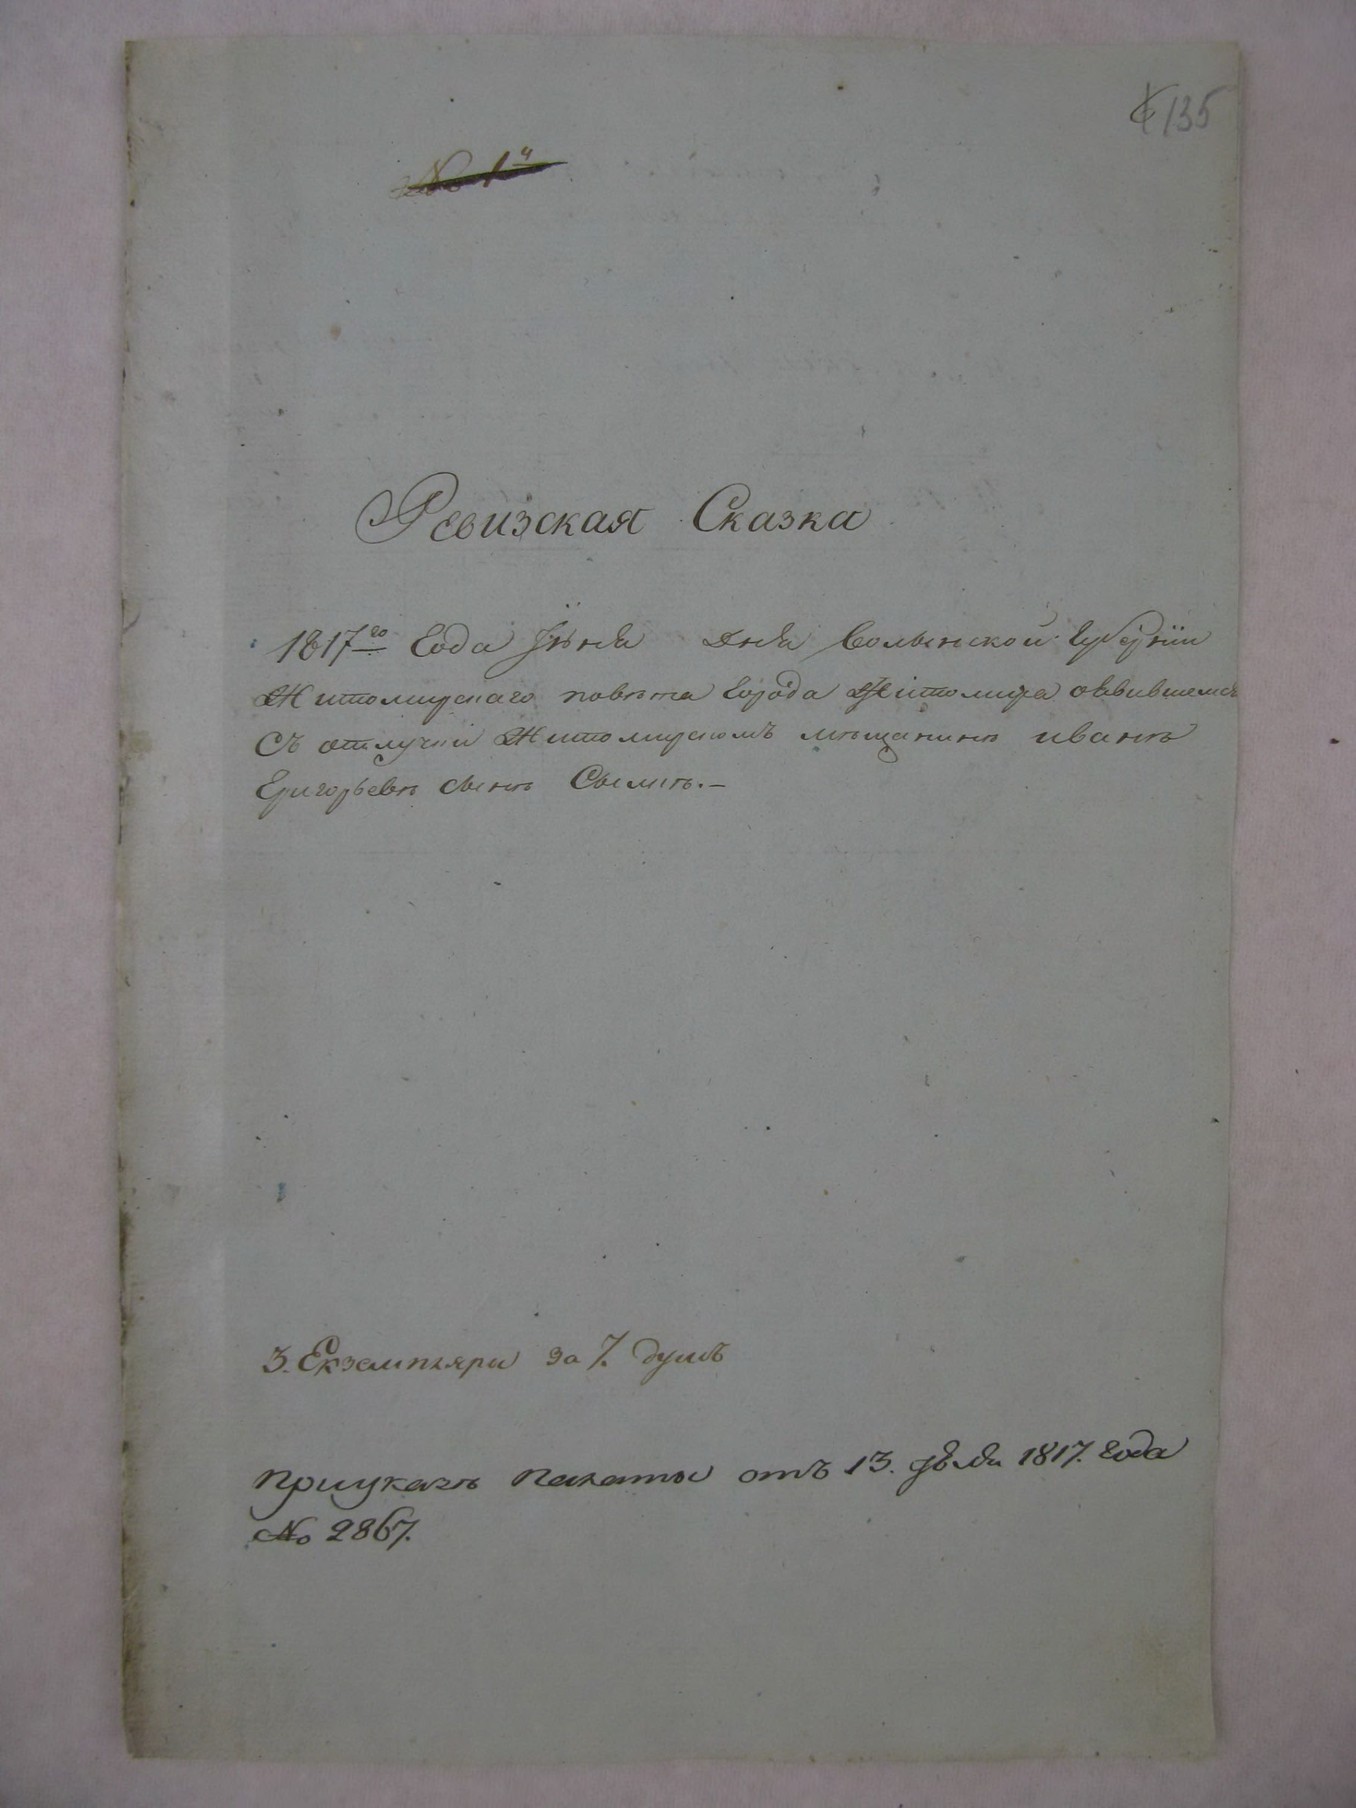 135
№ 1й
Ревизская Сказка
1817го Года Іюня дня Волынской Губерніи
Житомирскаго повѣта Города Житомира
Съ отлучки Житомирскомъ мѣщанинѣ иванѣ
Григорьевѣ сынѣ
3. Екземпляри за 7. душъ
приуказѣ палаты отъ 13. 1817. Года
№ 2867.